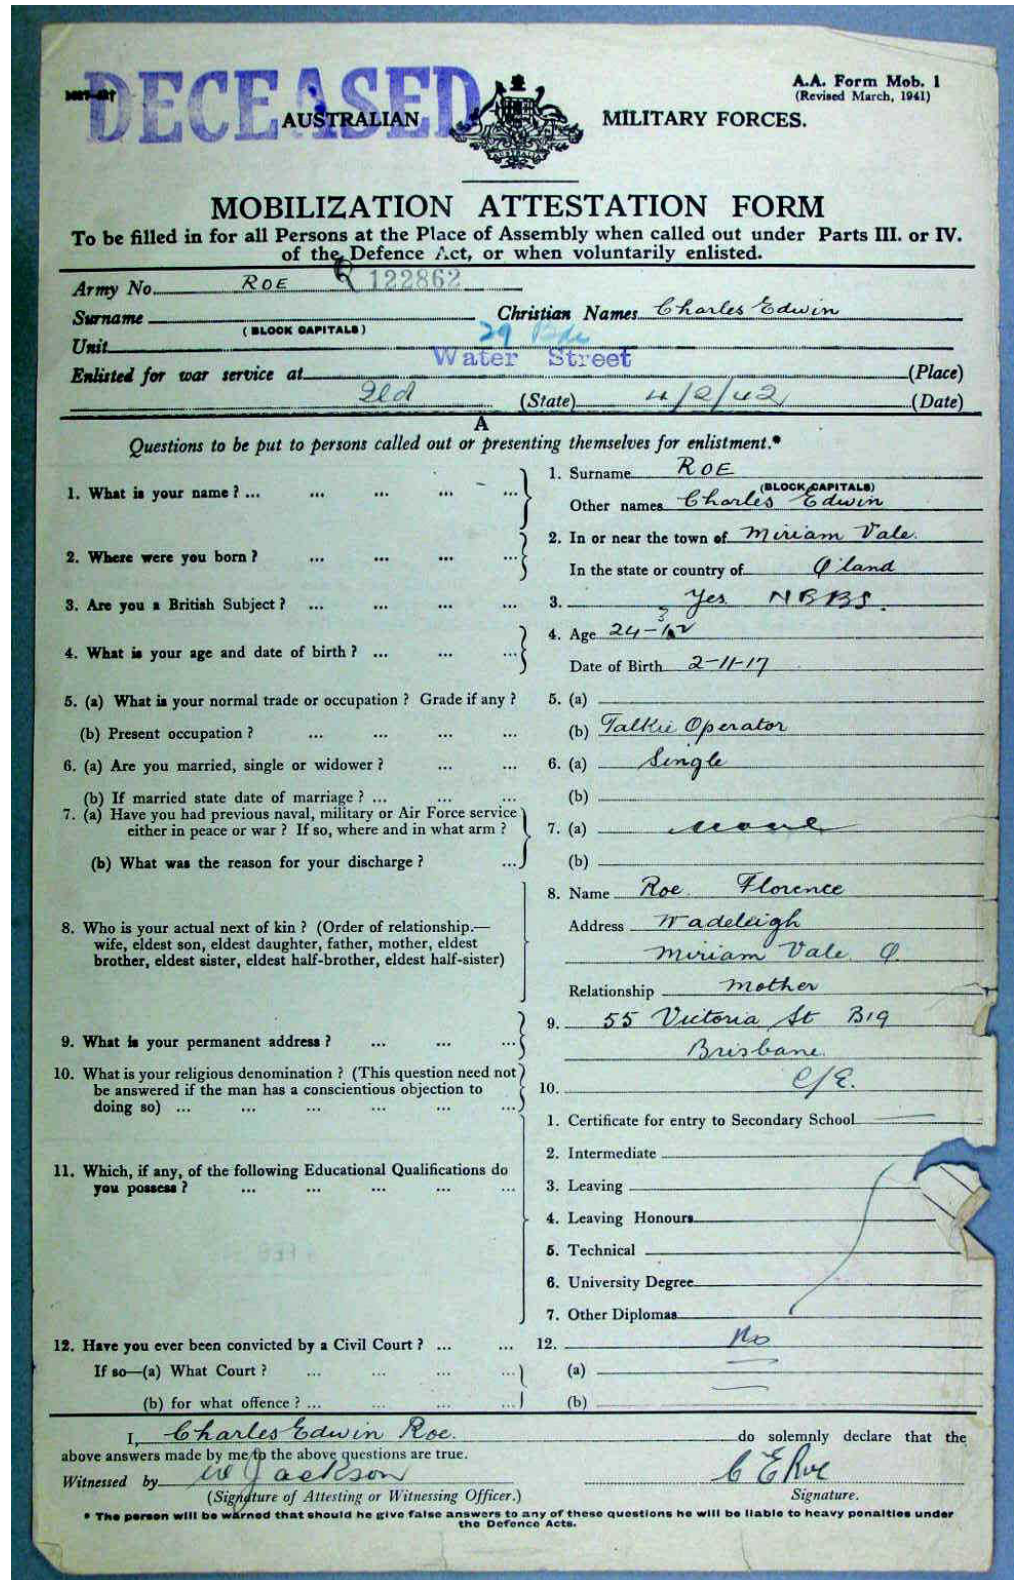 DECEASED
A.A. Form Mob. 1
(Revised March, 1941)
AUSTRALIAN MILITARY FORCES.
AUSTRALIA
MOBILIZATION ATTESTATION FORM
To be filled in for all Persons at the Place of Assembly when called out under Parts III. or IV.
of the Defence Act, or when voluntarily enlisted.
Army No. ROE Q 122862
Surname Christian Names Charles Edwin
(BLOCK CAPITALS)
Unit 29 Bde
Water Street
Enlisted for war service at (Place)
Qld (State) 4/2/42 (Date)
A
Questions to be put to persons called out or presenting themselves for enlistment.*
1. What is your name? ... ... ... ... ... 1. Surname ROE
(BLOCK CAPITALS)
Other names Charles Edwin
2. Where were you born? ... ... ... ... 2. In or near the town of Miriam Vale.
In the state or country of Q'land
3. Are you a British Subject? ... ... ... ... 3. Yes NBBS.
4. What is your age and date of birth? ... ... ... 4. Age 24-3/12
Date of Birth 2-11-17
5. (a) What is your normal trade or occupation? Grade if any? 5. (a)
(b) Present occupation? ... ... ... ... (b) Talkie Operator
6. (a) Are you married, single or widower? ... ... 6. (a) Single
(b) If married state date of marriage? ... ... ... (b)
7. (a) Have you had previous naval, military or Air Force service
either in peace or war? If so, where and in what arm? 7. (a) none
(b) What was the reason for your discharge? ... (b)
8. Name Roe Florence
8. Who is your actual next of kin? (Order of relationship.— Address Wadeleigh
wife, eldest son, eldest daughter, father, mother, eldest
brother, eldest sister, eldest half-brother, eldest half-sister) Miriam Vale Q.
Relationship Mother
9. 55 Victoria St B19
9. What is your permanent address? ... ... ... Brisbane.
10. What is your religious denomination? (This question need not
be answered if the man has a conscientious objection to 10. C/E.
doing so) ... ... ... ... ... ...
1. Certificate for entry to Secondary School
2. Intermediate
11. Which, if any, of the following Educational Qualifications do
you possess? ... ... ... ... ... 3. Leaving
4. Leaving Honours
5. Technical
6. University Degree
7. Other Diplomas
12. Have you ever been convicted by a Civil Court? ... ... 12. No
If so—(a) What Court? ... ... ... ... (a)
(b) for what offence? ... ... ... ... (b)
I, Charles Edwin Roe. do solemnly declare that the
above answers made by me to the above questions are true.
Witnessed by W Jackson C E Roe
(Signature of Attesting or Witnessing Officer.) Signature.
* The person will be warned that should he give false answers to any of these questions he will be liable to heavy penalties under
the Defence Acts.